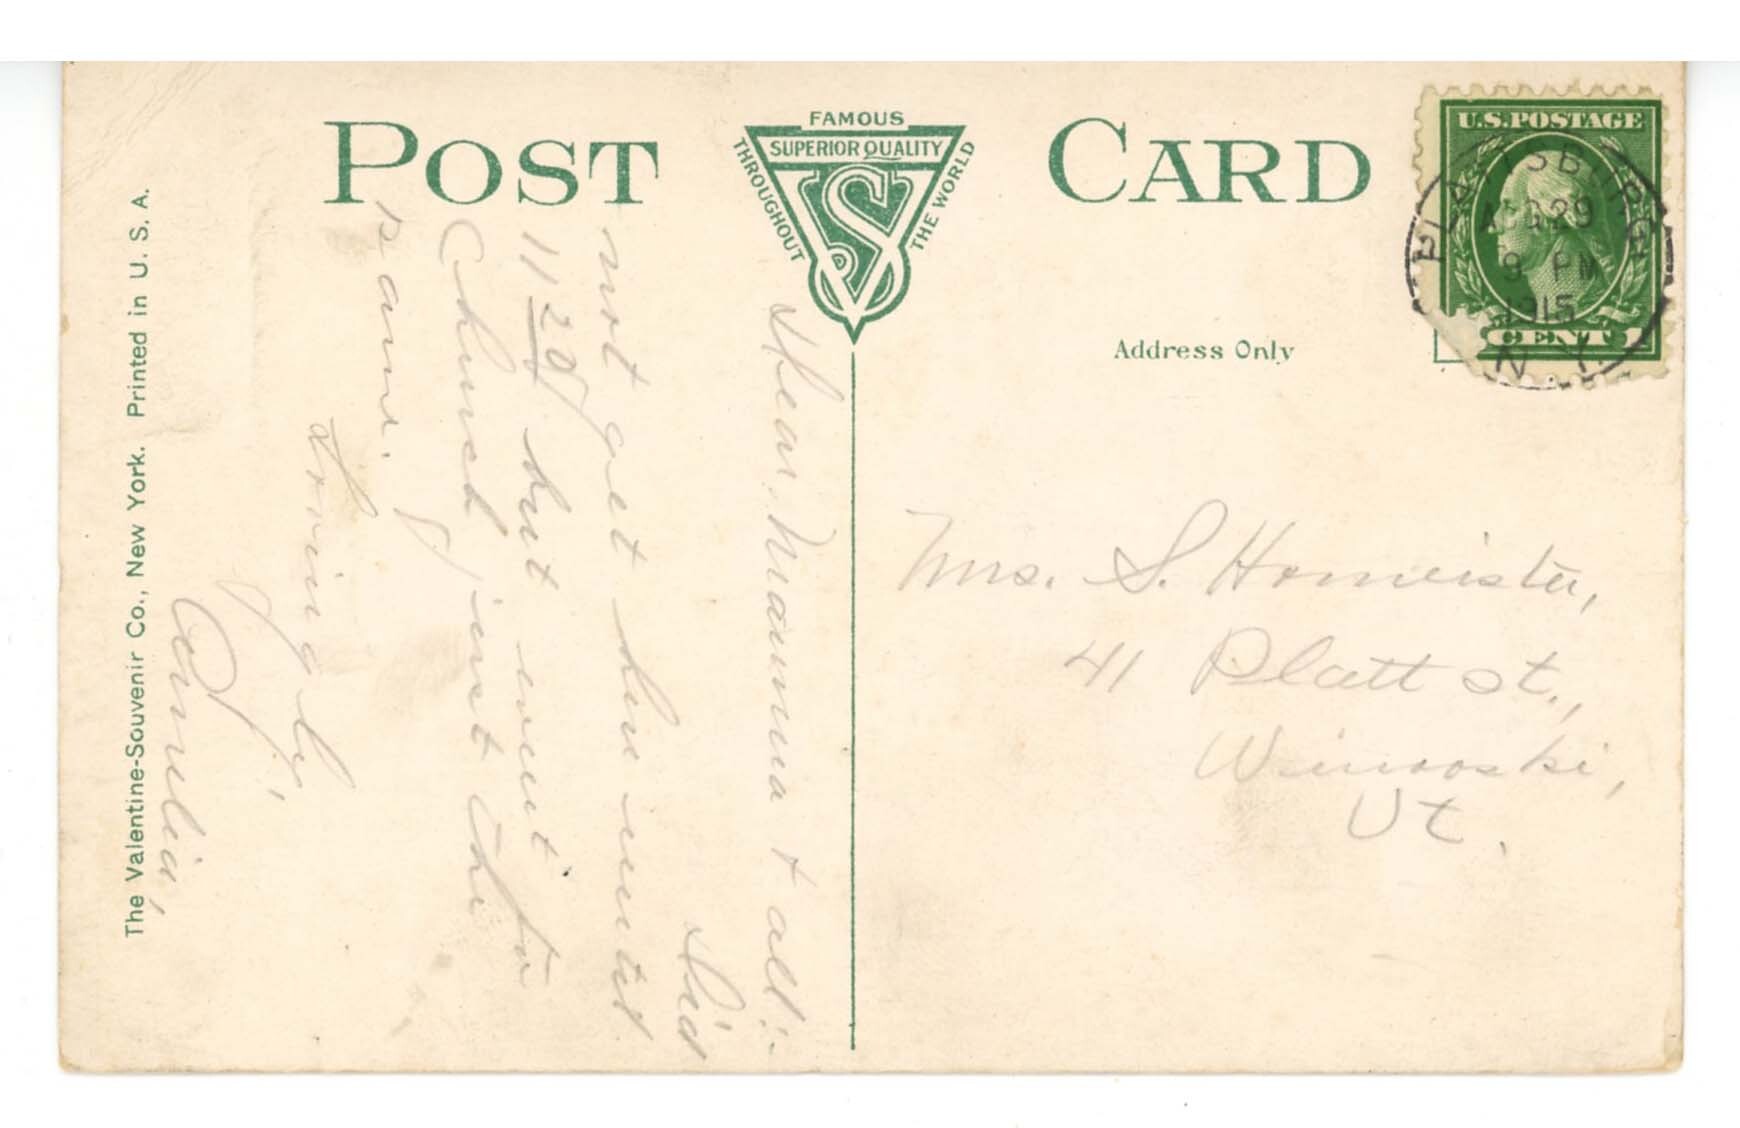 POST CARD
FAMOUS
SUPERIOR QUALITY
THROUGHOUT
THE WORLD
VS
U.S. POSTAGE
1 CENT 1
PLATTSBURG
AUG 29
9 PM
1915
N.Y.
Address Only
Mrs. S. Homeister,
41 Platt St.,
Winooski,
Vt.
Dear Mamma & all:-
Did
not get here until
11 20 but went to
Church just the
same.
Lovingly,
Cornelia,
The Valentine-Souvenir Co., New York. Printed in U. S. A.